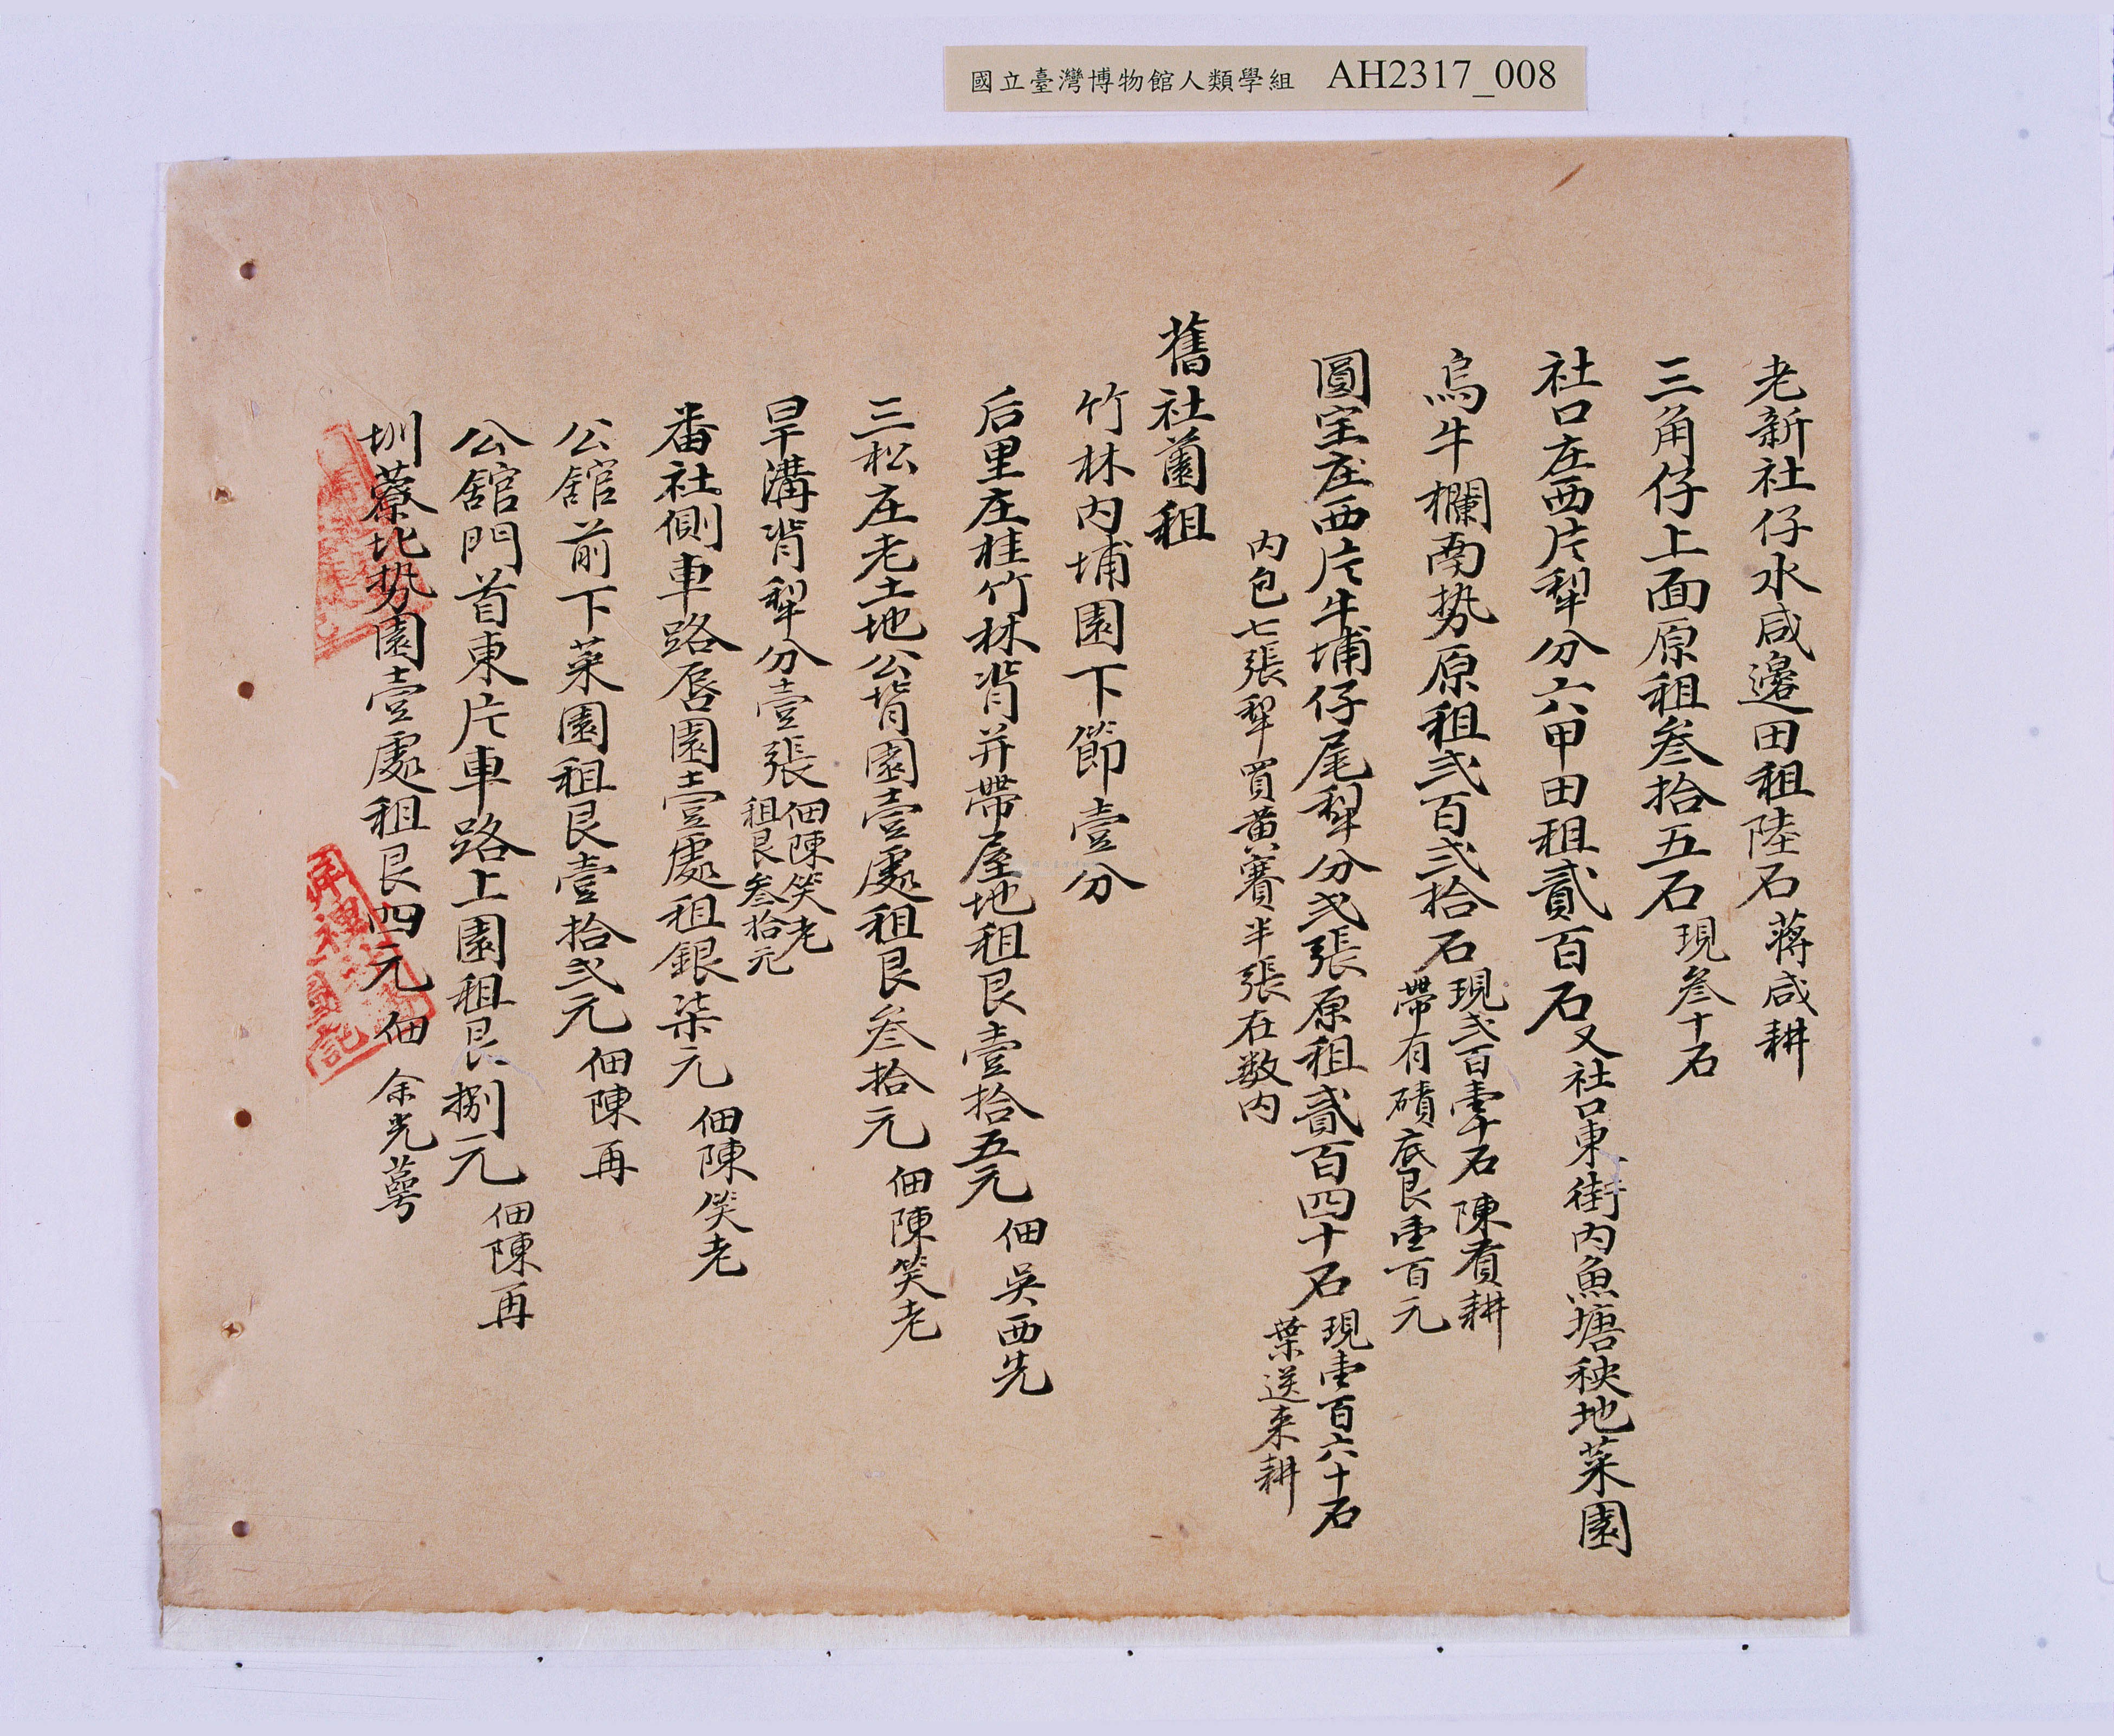 國立臺灣博物館人類學組 AH2317_008
老新社仔水咸邊田租陸石 蔣咸耕
三角仔上面原租叁拾五石 現叁十石
社口庄西片犁分六甲田租貳百石 又社口東街內魚塘秧地菜園
烏牛欄南势原租弍百弍拾石 現弍百壹十石 陳有耕
帶有磧底艮壹百元
圓宝庄西片牛埔仔尾犁分弍張原租貳百四十石 現壹百六十石
葉送来耕
內包七張犁買黃賽半張在数內
舊社菌租
竹林內埔園下節壹分
后里庄桂竹林背并帶屋地租艮壹拾五元 佃吳西先
三松庄老土地公背園壹處租艮叁拾元 佃陳笑老
旱溝背犁分壹張 佃陳笑老
租艮叁拾元
番社側車路唇園壹處租銀柒元 佃陳笑老
公舘前下菜園租艮壹拾弍元 佃陳再
公舘門首東片車路上園租艮捌元 佃陳再
圳藔北势園壹處租艮四元 佃 余光萼